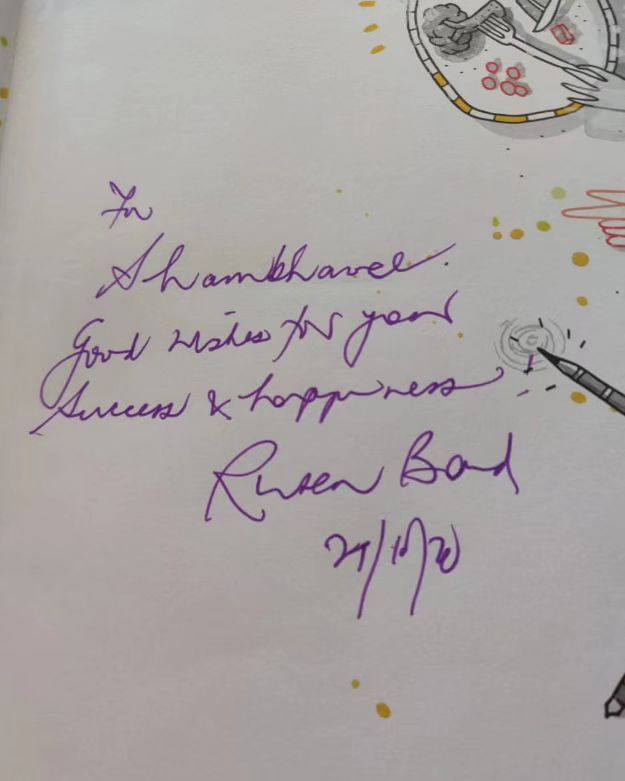 For
Shambhavee.
Good wishes for your
Success & happiness
Ruskin Bond
/10/20